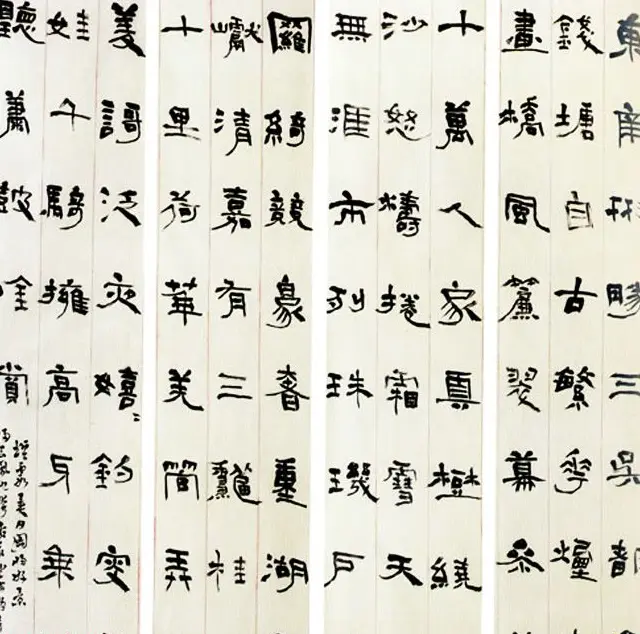 東南形勝三吳都
錢塘自古繁華煙
畫橋風簾翠幕參
十萬人家樹繞
沙怒濤捲霜雪天
無涯市列珠璣戶
羅綺競豪奢重湖
巘清嘉有三秋桂
十里荷華羌管弄
菱謌泛夜嬉〻釣叟
娃千騎擁高牙乘
聽蕭鼓吟賞